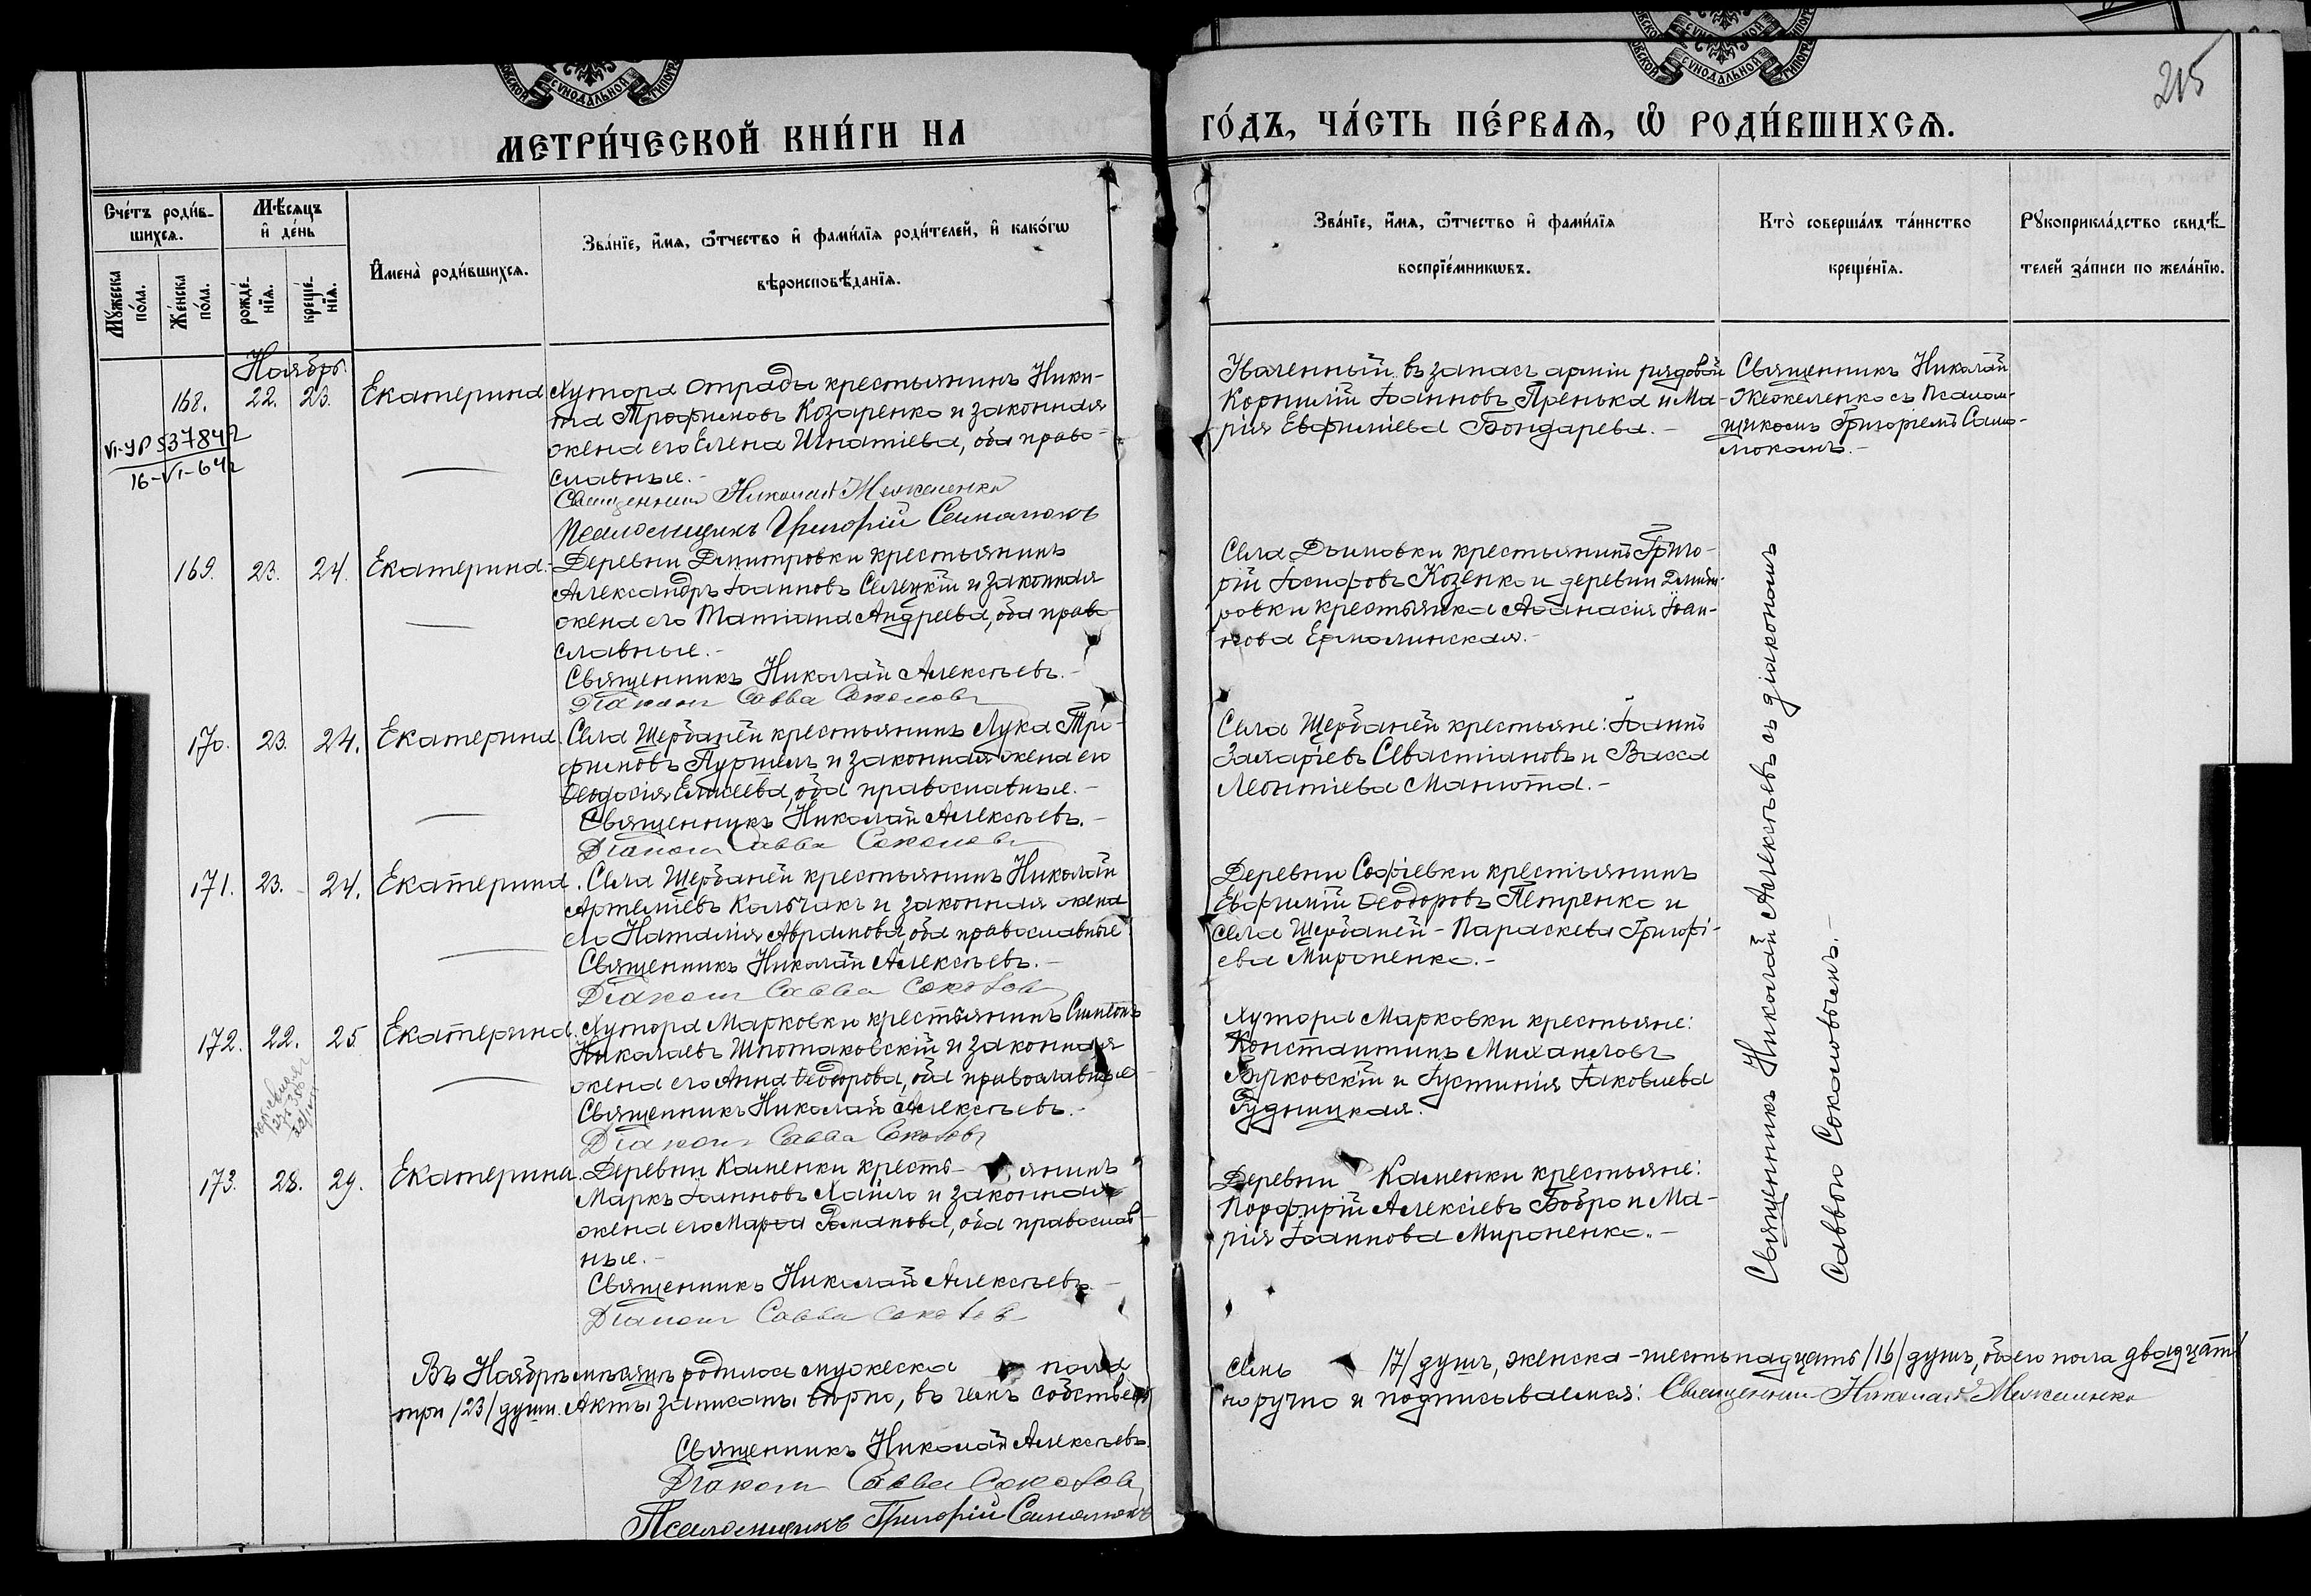 СУНОДАЛЬНОЙ
СУНОДАЛЬНОЙ
215
МЕТРИ́ЧЕСКОЙ КНИ́ГИ НА
ГО́ДЪ, ЧА́СТЬ ПЕ́РВАЯ, Ѽ РОДИ́ВШИХСЯ.
Сче́тъ роди́в-
шихся.
Мѣ́сяцъ
и де́нь
Му́жеска
по́ла.
Же́нска
по́ла.
рожде́-
нїя.
креще́-
нїя.
Имена̀ роди́вшихся.
Зва́нїе, и́мя, ѻ҆́тчество и фами́лїя роди́телей, и како́гѡ
вѣроисповѣ́данїя.
Зва́нїе, и́мя, ѻ҆́тчество и фами́лїя
воспрїе́мникѡвъ.
Кто̀ соверша́лъ та́инство
креще́нїя.
Рꙋкоприкла́дство свидѣ́-
телей за́писи по жела́нїю.
Ноябрь
168. 22. 23. Екатерина
Хутора Отрады крестьянинъ Ники-
та Трофимовъ Козаренко и законная
жена его Елена Игнатіева, оба право-
славные.-
Священникъ Николай
Псаломщикъ Григорій
VI-УР 537842
16-VI-64г
Уволенный въ запасъ арміи рядовой
Корнилій Іоанновъ Пренька и Ма-
рія Евфиміева Бондарева.-
Священникъ Николай
съ Псалом-
щикомъ Григоріемъ
169. 23. 24. Екатерина.
Деревни Дмитровки крестьянинъ
Александръ Іоанновъ Селецкій и законная
жена его Татіана Андреева, оба право-
славные.-
Священникъ Николай Алексѣевъ.-
Діаконъ Савва Соколовъ
Села Дымовки крестьянинъ Григо-
рій Іосифовъ Козенко и деревни Дмит-
ровки крестьянка Аѳанасія Іоан-
нова Ермолинская.-
170. 23. 24. Екатерина
Села Щербаней крестьянинъ Лука Три-
фновъ и законная жена его
Ѳеодосія Елисеева, оба православные.-
Священникъ Николай Алексѣевъ.-
Діаконъ Савва Соколовъ
Села Щербаней крестьяне: Іоаннъ
Захаріевъ Севастіановъ и Васса
Леонтіева Манюта.-
171. 23. 24. Екатерина.
Села Щербаней крестьянинъ Николай
Артеміевъ Колбчакъ и законная жена
его Наталія Аврамова, оба православные
Священникъ Николай Алексѣевъ.-
Діаконъ Савва Соколовъ
Деревни Софіевки крестьянинъ
Евфимій Ѳеодоровъ Петренко и
села Щербаней - Параскева Григорі-
ева Мироненко.-
172. 22. 25. Екатерина.
Хутора Марковки крестьянинъ Симеонъ
Николаевъ Шпотаковскій и законная
жена его Анна Ѳеодорова, оба православные
Священникъ Николай Алексѣевъ.-
Діаконъ Савва Соколовъ
Хутора Марковки крестьяне:
Константинъ Михаиловъ
Бучковскій и Іустинія Іаковлева
Рудницкая.
173. 28. 29. Екатерина.
Деревни Каменки кресть- янинъ
Маркъ Іоанновъ Хайло и законная
жена его Марѳа Романова, оба православ-
ные.-
Священникъ Николай Алексѣевъ.-
Діаконъ Савва Соколовъ
Деревни Каменки крестьяне:
Порфирій Алексіевъ Бобро и Ма-
рія Іоаннова Мироненко.-
Священникъ Николай Алексѣевъ съ діакономъ
Саввою Соколовымъ.-
Въ Ноябрѣ мѣсяцѣ родилось мужеска пола
семь /7/ душъ, женска - шестьнадцать /16/ душъ, обоего пола двадцать
три /23/ души. Акты записаны вѣрно, въ чемъ собствен
норучно и подписываемся: Священникъ Николай
Священникъ Николай Алексѣевъ.
Діаконъ Савва Соколовъ
Псаломщикъ Григорій